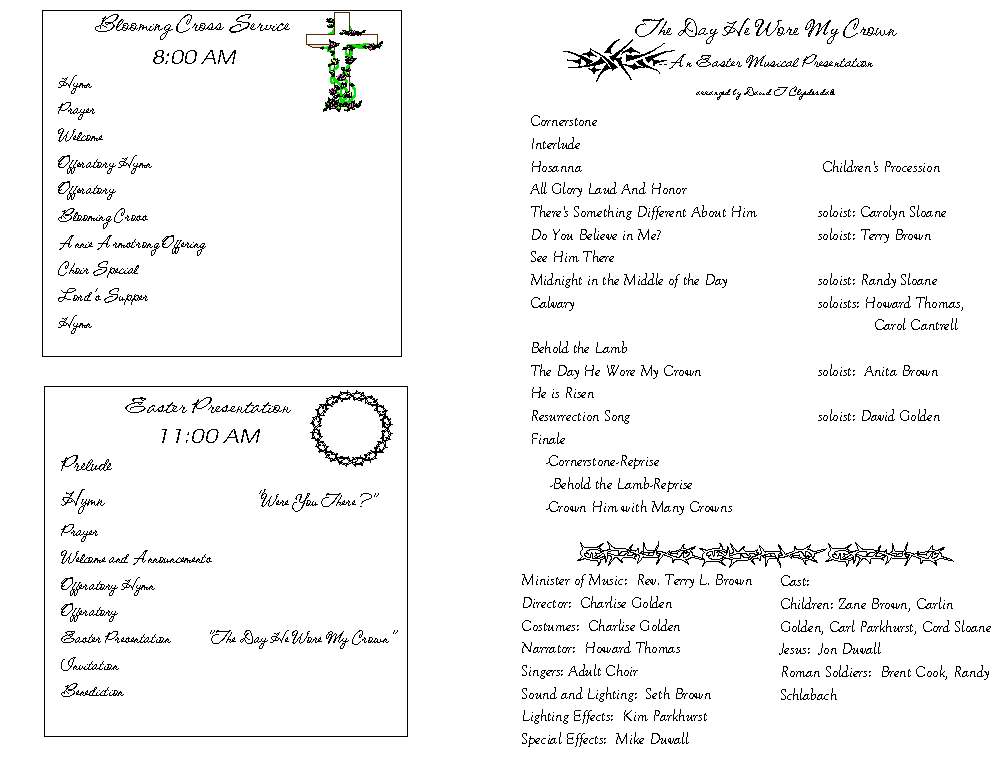 Blooming Cross Service
8:00 AM
Hymn
Prayer
Welcome
Offeratory Hymn
Offeratory
Blooming Cross
Annie Armstrong Offering
Choir Special
Lord's Supper
Hymn
Easter Presentation
11:00 AM
Prelude
Hymn "Were You There?"
Prayer
Welcome and Announcements
Offeratory Hymn
Offeratory
Easter Presentation "The Day He Wore My Crown"
Invitation
Benediction
The Day He Wore My Crown
An Easter Musical Presentation
arranged by David T Clydesdale
Cornerstone
Interlude
Hosanna Children's Procession
All Glory Laud And Honor
There's Something Different About Him soloist: Carolyn Sloane
Do You Believe in Me? soloist: Terry Brown
See Him There
Midnight in the Middle of the Day soloist: Randy Sloane
Calvary soloists: Howard Thomas,
Carol Cantrell
Behold the Lamb
The Day He Wore My Crown soloist: Anita Brown
He is Risen
Resurrection Song soloist: David Golden
Finale
-Cornerstone-Reprise
-Behold the Lamb-Reprise
-Crown Him with Many Crowns
Minister of Music: Rev. Terry L. Brown
Director: Charlise Golden
Costumes: Charlise Golden
Narrator: Howard Thomas
Singers: Adult Choir
Sound and Lighting: Seth Brown
Lighting Effects: Kim Parkhurst
Special Effects: Mike Duvall
Cast:
Children: Zane Brown, Carlin
Golden, Carl Parkhurst, Cord Sloane
Jesus: Jon Duvall
Roman Soldiers: Brent Cook, Randy
Schlabach